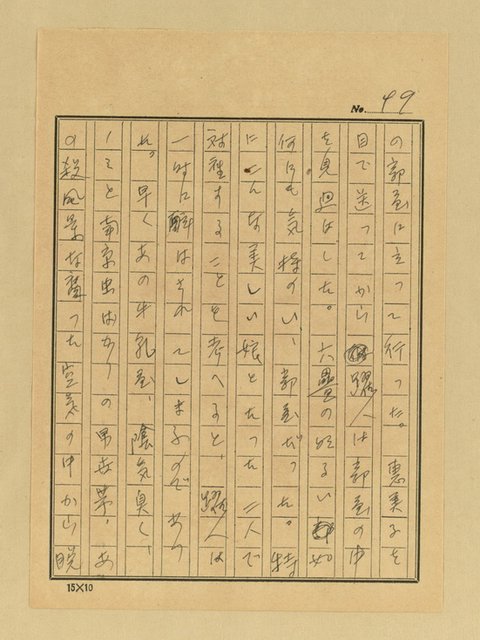 No. 49
の部屋に立って行った。恵美子を
目で送ってから、耀人は部屋の中
を見廻はした。六畳の明るい、如
何にも気持のいい、部屋だった。特
にこんな美しい娘とたった二人で
対座することを考へると、耀人は
一時に酔はされてしまふのであっ
た。早くあの牛乳屋、陰気臭く、
ノミと南京虫ばかりの男世帯、あ
の殺風景な腐った空気の中から脱
15×10